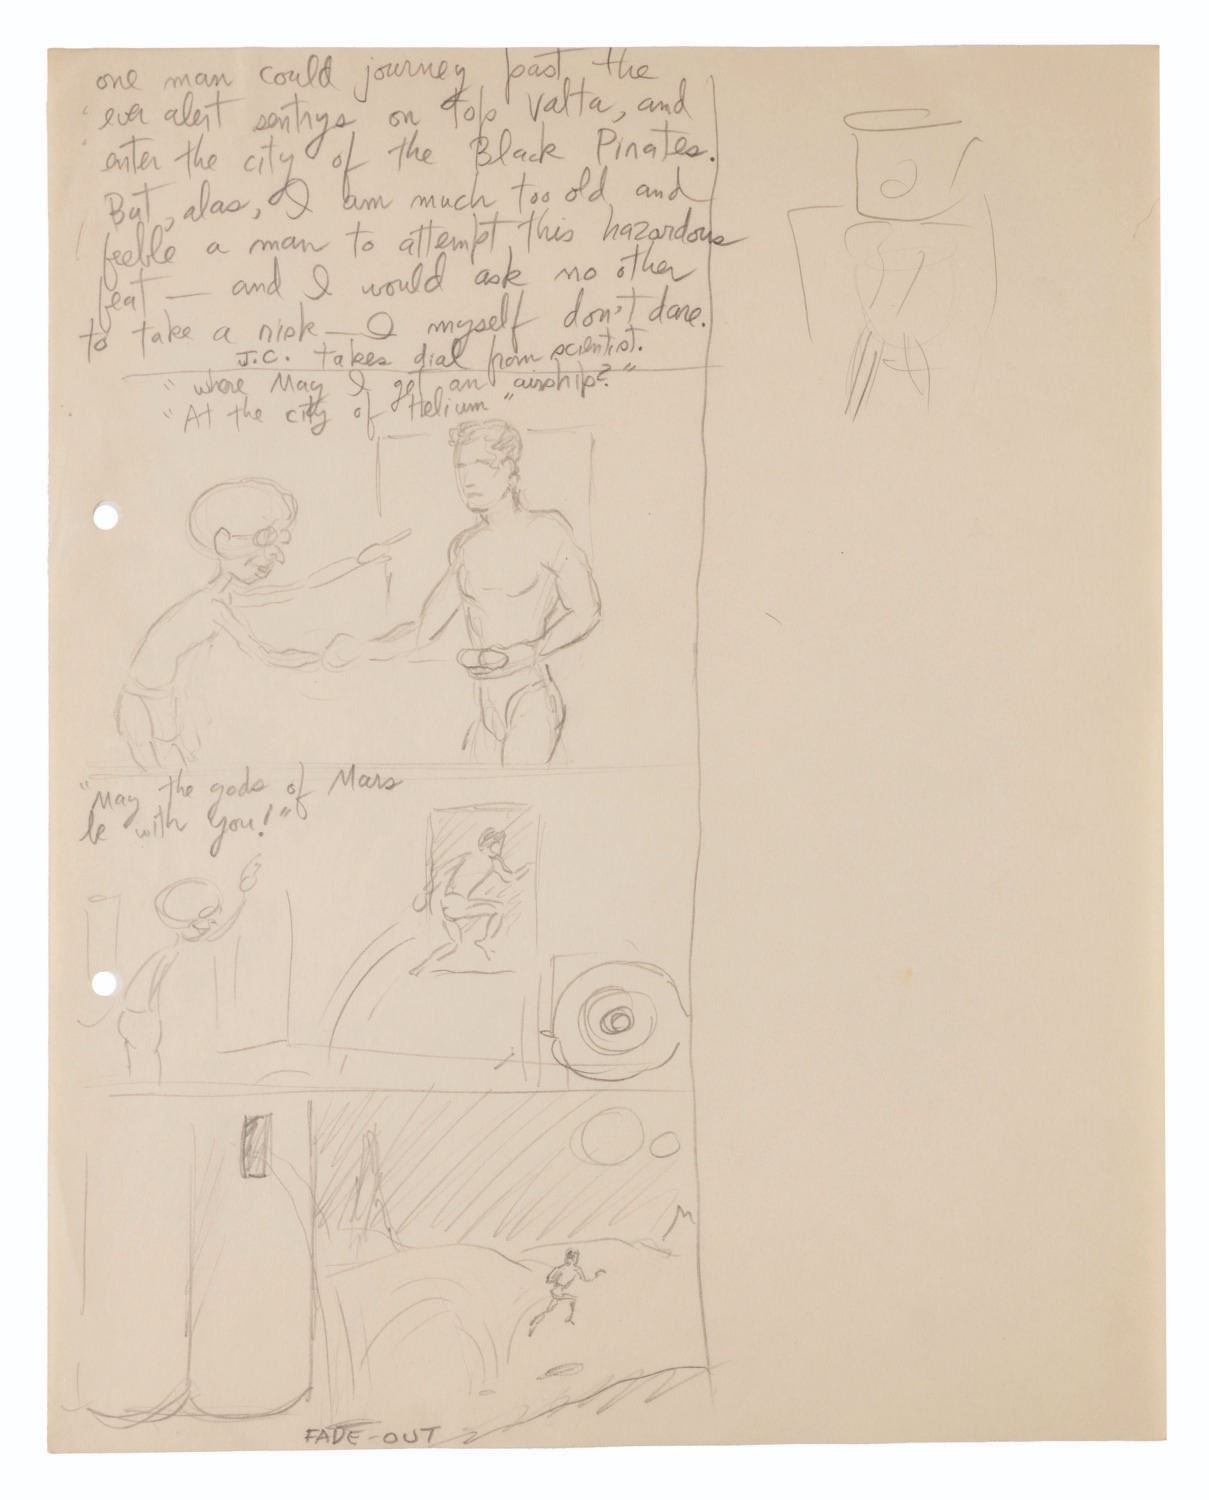 one man could journey past the
ever alert sentrys on top Valta, and
enter the city of the Black Pirates.
But, alas, I am much too old and
feeble a man to attempt this hazardous
feat — and I would ask no other
to take a risk — I myself don't dare.
J.C. takes dial from scientist.
"where May I get an airship?"
"At the city of Helium"
"May the gods of Mars
be with you!"
FADE-OUT